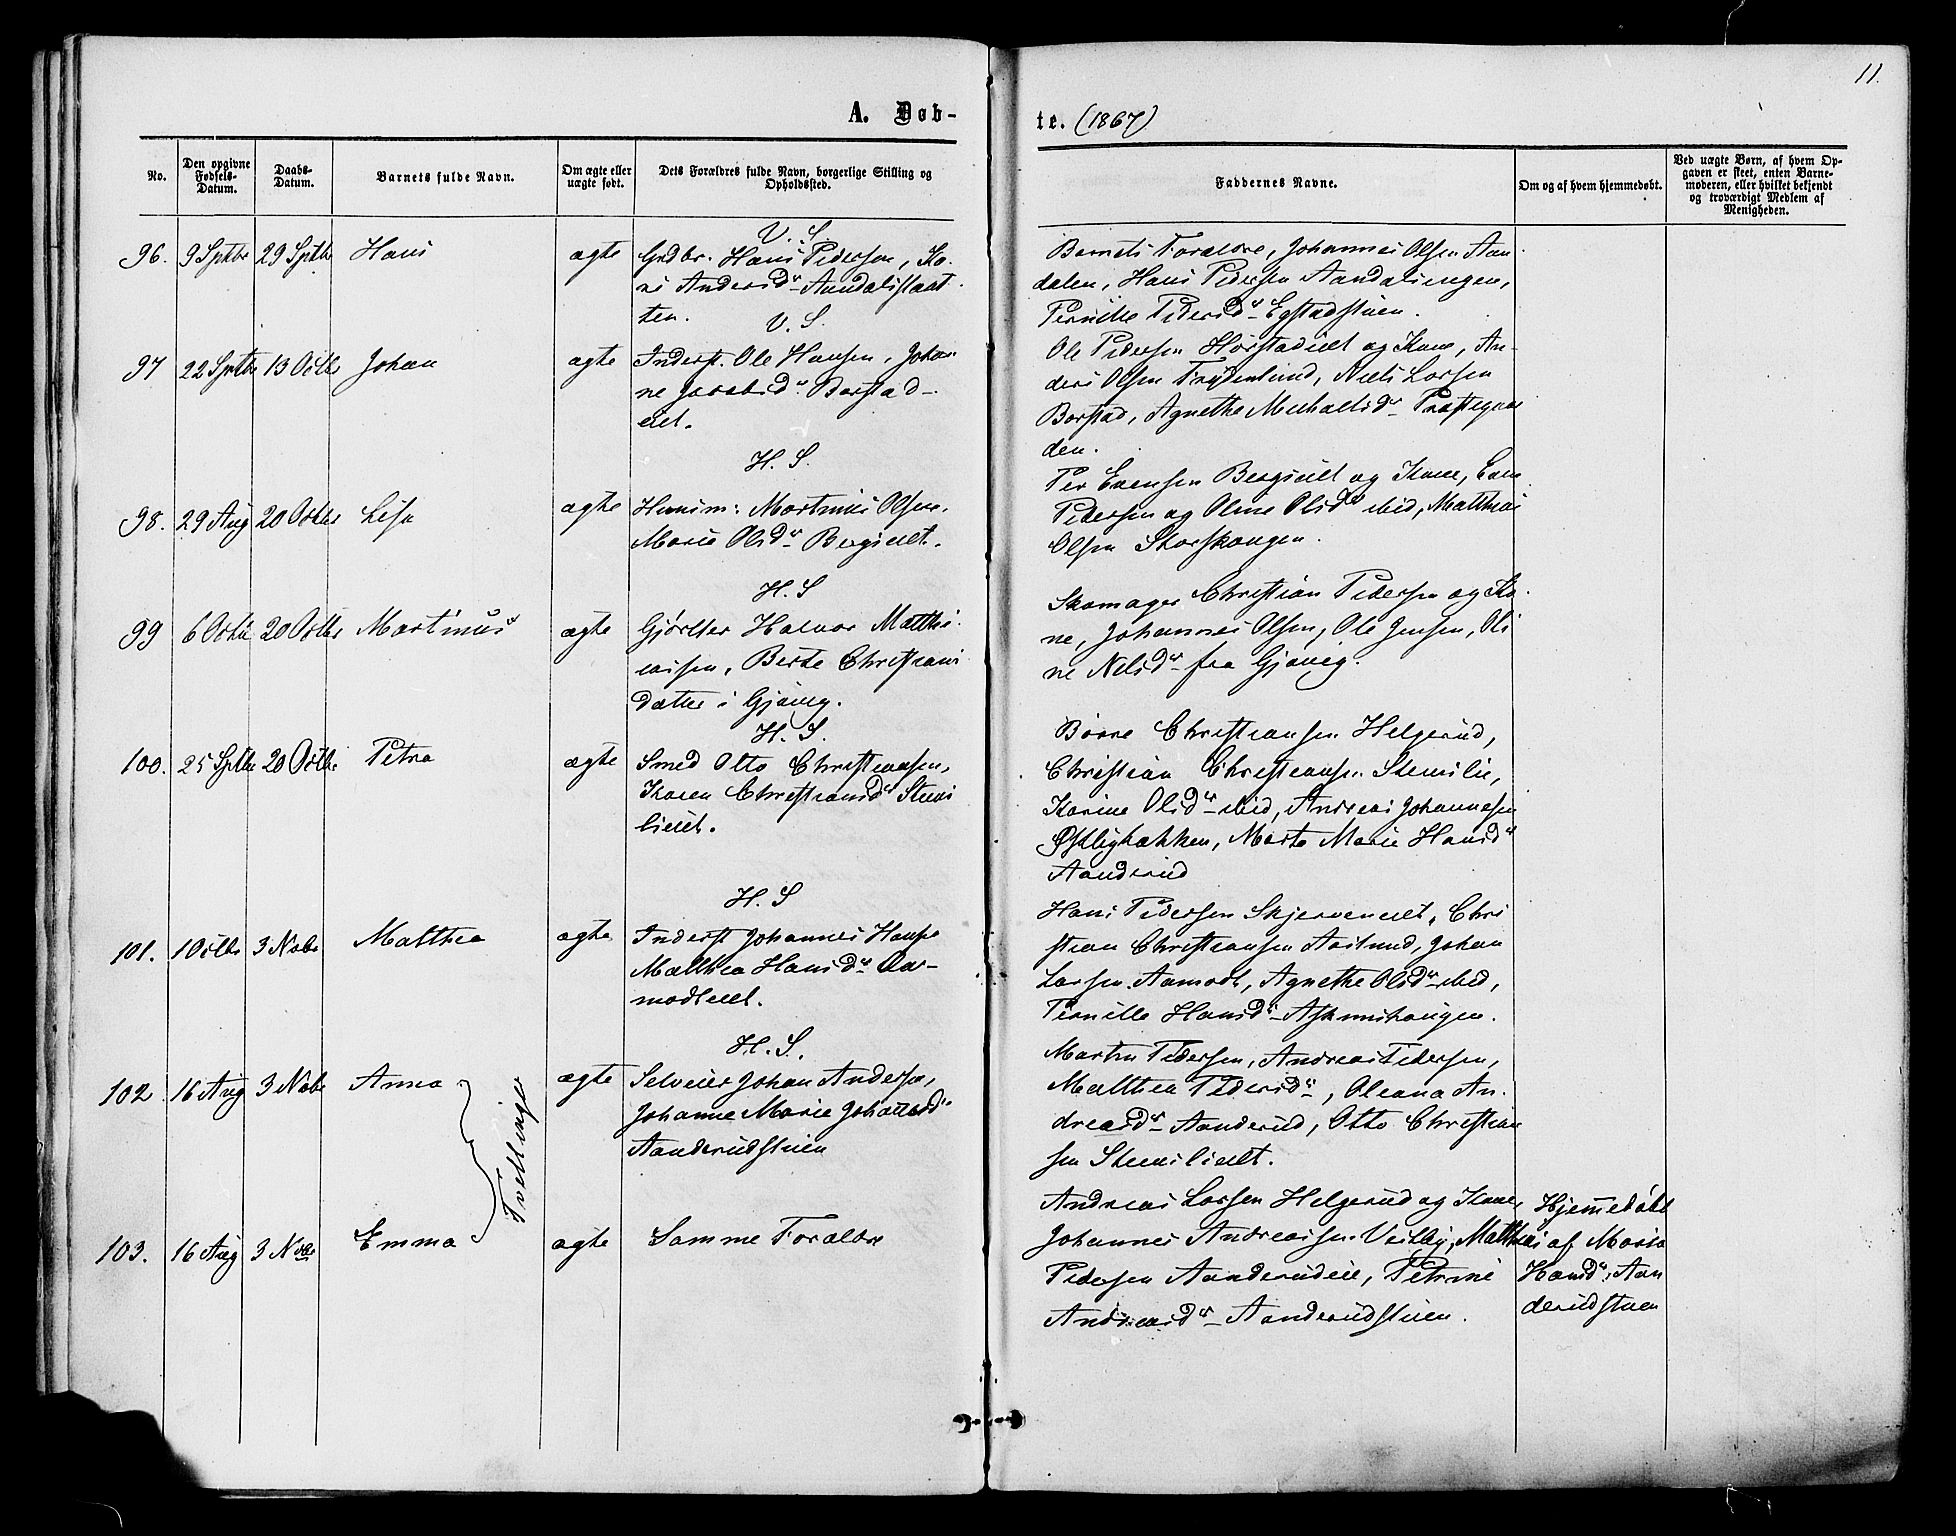 11.
A. Døb-
te. (1867)
No.
Den opgivne Fødsels-Datum.
Daabs-Datum.
Barnets fulde Navn.
Om ægte eller uægte født.
Dets Forældres fulde Navn, borgerlige Stilling og Opholdssted.
Faddernes Navne.
Om og af hvem hjemmedøbt.
Ved uægte Børn, af hvem Opgaven er skeet, enten Barnemoderen, eller hvilket bekjendt og troværdigt Medlem af Menigheden.
V. S
96. 9 Sptbr 29 Sptb Hans ægte Grdbr. Hans Pedersen, Ka-
ri Andersdr Aandalsstaat
ten.
Barnets Forældre, Johannes Olsen Aan
dalen, Hans Pedersen Aandalsengen,
Pernille Pedersdr Egstadstuen.
V. S.
97 22 Sptbr 13 Octbr Johan ægte Inderst. Ole Hansen, Johan
ne Jacobsdr Borstad-
eiet.
Ole Pedersen Horstadeiet og Kone, An-
ders Olsen Frydenlund, Niels Larsen
Borstad, Agnethe Michaelsdr Præstegaar
den.
H. S.
98. 29 Aug 20 Octbr Lisa ægte Huusm: Martinus Olsen,
Marie Olsdr Bergseiet.
Per Evensen Bergseiet og Kone, Even
Pedersen og Oline Olsdr ibid, Matthias
Olsen Skorskaugen.
H. S
99 6 Octbr 20 Octbr Martinus ægte Gjørtler Halvor Matthi-
asen, Berte Christians
datter i Gjøvig.
Skomager Christian Pedersen og Ko-
ne, Johannes Olsen, Ole Jensen, Oli
ne Nelsdr fra Gjøvig.
H. S.
100. 25 Sptbr 20 Octbr Petra ægte Smed Otto Christiansen,
Karen Christiansdr Steens
lieiet.
Børre Christiansen Helgerud,
Christian Christiansen Steenslie,
Karine Olsdr ibid, Andreas Johannesen
Østlighakken, Marte Marie Hansdr
Aanderud
H. S
101. 1 Octbr 3 Novbr Matthea ægte Inderst Johannes Hansen
Matthea Hansdr Aa-
modteiet.
Hans Pedersen Skjerveneiet, Chri
stian Christiansen Aaslund, Johan
Larsen Aamodt, Agnethe Olsdr ibid,
Pernille Hansdr Askimshaugen.
H. S.
102 16 Aug 3 Novbr Anna ægte Selveier Johan Andersen,
Johanne Marie Johannesdr
Aanderudstuen
Martin Pedersen, Andreas Pedersen,
Matthea Pedersdr, Oleana An-
dreasdr Aanderud, Otto Christian
sen Steenslieiet.
Tvillinger
103. 16 Aug 3 Novbr Emma ægte Samme Forældre
Andreas Larsen Helgerud og Kone,
Johannes Andreassen Veilby, Matthias
Pedersen Aanderudeie, Petrine
Andreasdr Aanderudstuen.
Hjemmedøbt
af Maria
Hansdr, Aan
derudstuen